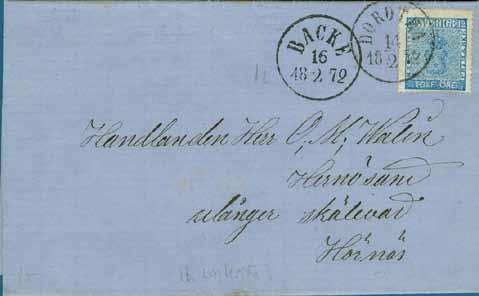 BACKE
16
18 2 72
DOROTEA
14
18 2 72
SVERIGE
TOLF ÖRE
Handlanden Herr O, M; Walin
Hernösand
ulånger skälsvad
Hörnäs